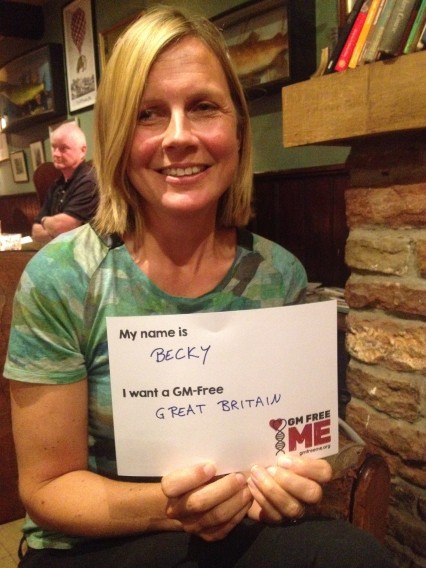 My name is
BECKY
I want a GM-Free
GREAT BRITAIN
GM FREE
ME
gmfreeme.org